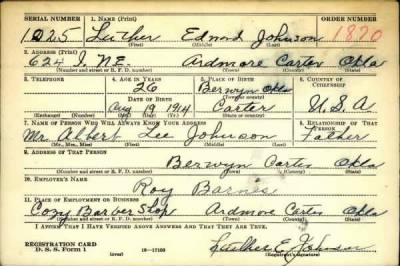 SERIAL NUMBER 1. NAME (Print) ORDER NUMBER
1025 Luther Edmod Johnson 1870
(First) (Middle) (Last)
2. ADDRESS (Print)
624 I. N.E. Ardmore Carter Okla
(Number and street or R. F. D. number) (Town) (County) (State)
3. TELEPHONE 4. AGE IN YEARS 5. PLACE OF BIRTH 6. COUNTRY OF CITIZENSHIP
26 Berwyn Okla
(Town or county)
DATE OF BIRTH
Aug 19 1914 Carter U.S.A
(Exchange) (Number) (Mo.) (Day) (Yr.) (State or country)
7. NAME OF PERSON WHO WILL ALWAYS KNOW YOUR ADDRESS 8. RELATIONSHIP OF THAT PERSON
Mr. Albert Lee Johnson Father
(Mr., Mrs., Miss) (First) (Middle) (Last)
9. ADDRESS OF THAT PERSON
Berwyn Carter Okla
(Number and street or R. F. D. number) (Town) (County) (State)
10. EMPLOYER'S NAME
Roy Barnes
11. PLACE OF EMPLOYMENT OR BUSINESS
Cozy Barber Shop Ardmore Carter Okla
(Number and street or R. F. D. number) (Town) (County) (State)
I AFFIRM THAT I HAVE VERIFIED ABOVE ANSWERS AND THAT THEY ARE TRUE.
REGISTRATION CARD
D. S. S. Form 1 (over) Luther E Johnson
(Registrant's signature)